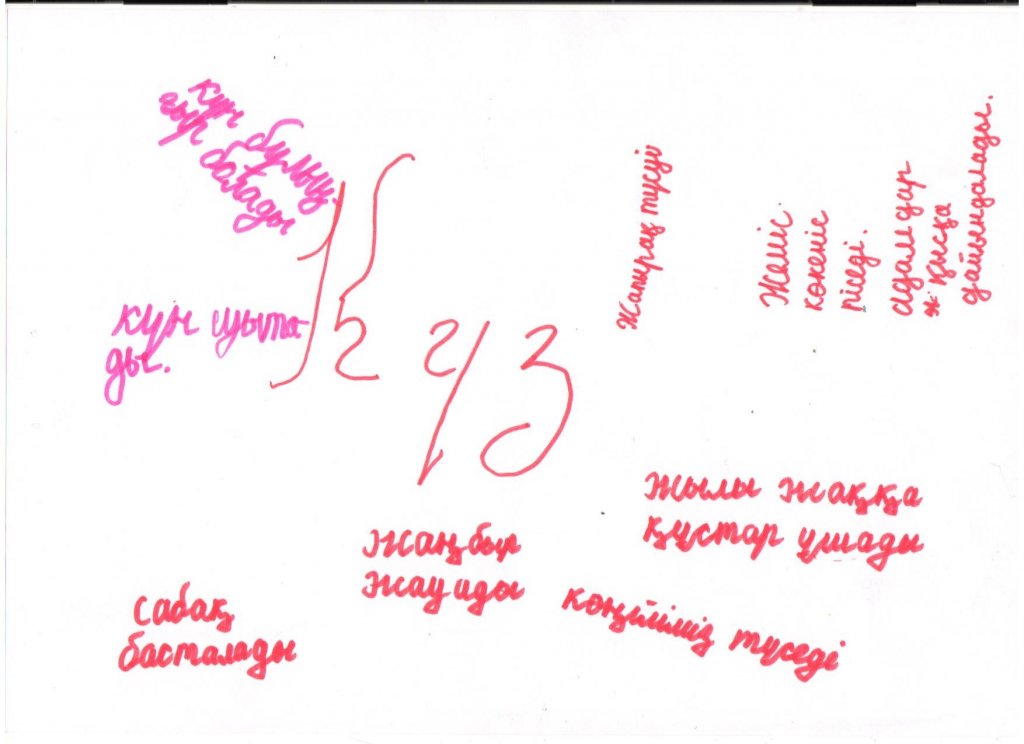 күн бұлың-
ғыр болады
күн суыта-
ды.
Күз
Жапырақ түсуі
Жеміс
көкеніс
піседі.
адамдар
ж қысқа
дайындалады.
жылы жаққа
құстар ұшады
жаңбыр
жауады
көңіліміз түседі
сабақ
басталады